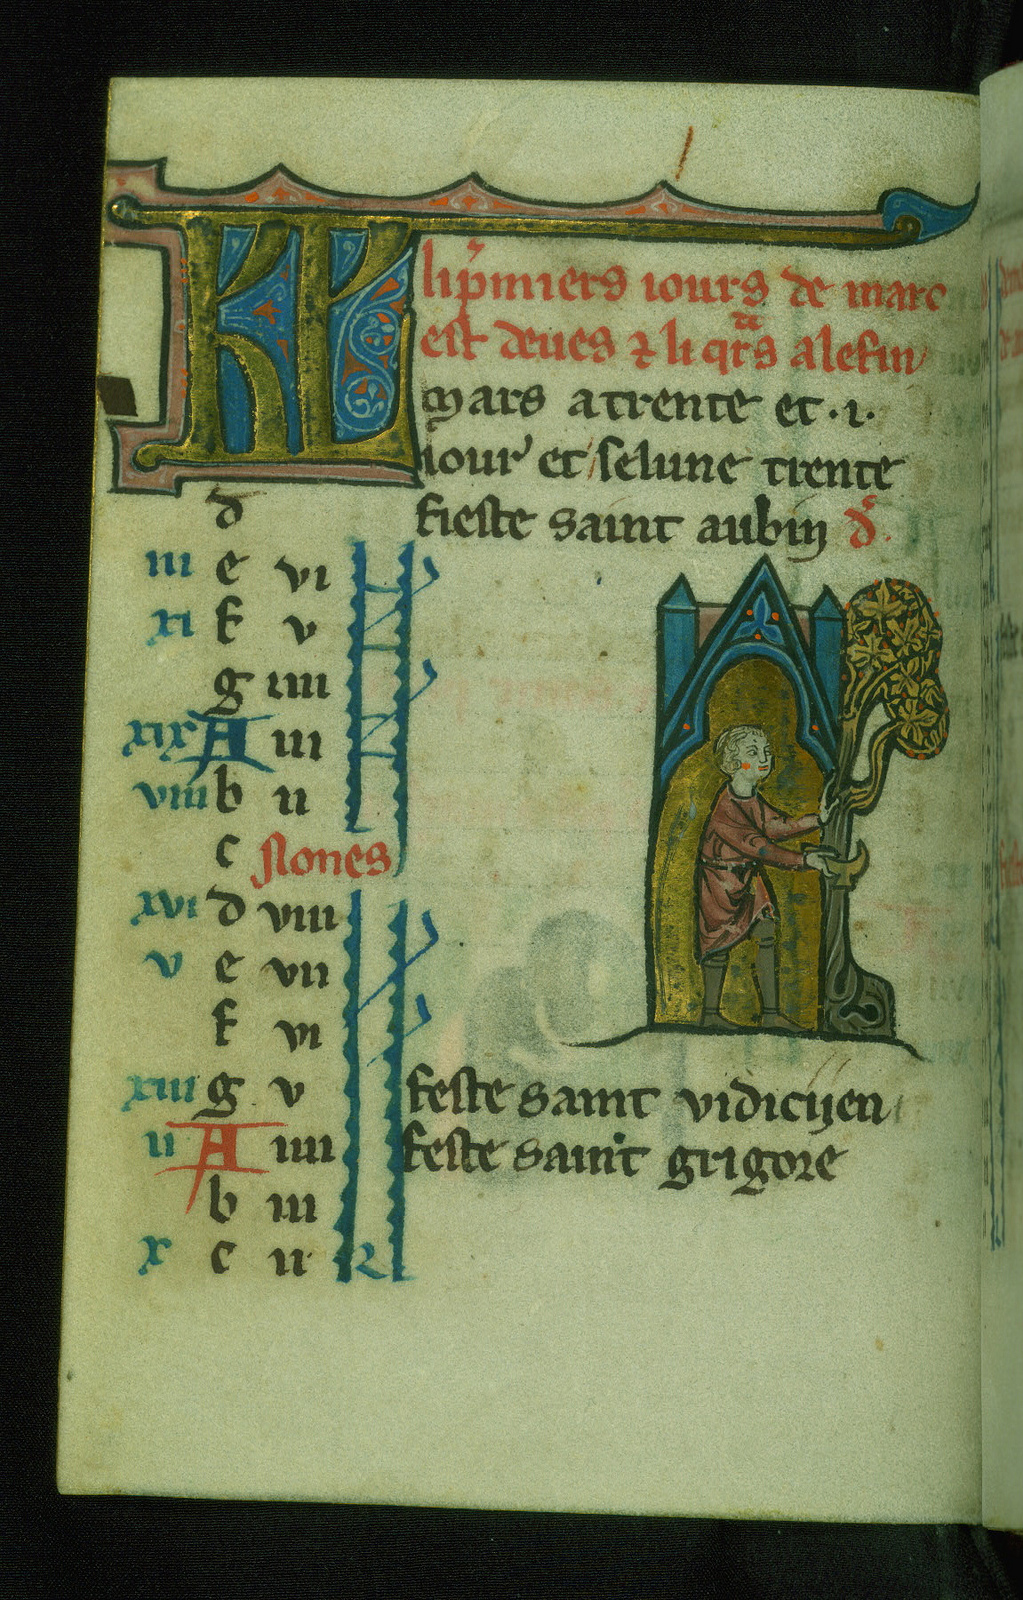 KL
li pͥmiers iours de marc
est deues ⁊ li qͣrs a le fin
Mars a trente et .i.
iour et se lune trente
d fieste saint aubin d'.
iii e vi
xi f v
g iiii
xix A iii
viii b ii
c Nones
xvi d viii
v e vii
f vi
xiii g v feste saint vidicijen
ii A iiii feste saint grigore
b iii
x c ii